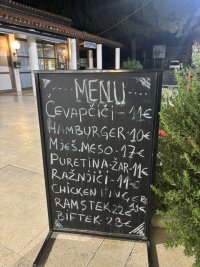 MENU
ČEVAPČIĆI-11€
HAMBURGER-10€
MJEŠ.MESO-17€
PURETINA-ŽAR-11€
RAŽNJIĆI-11€
CHICKEN FINGERS
RAMSTEK-22€
BIFTEK-28€